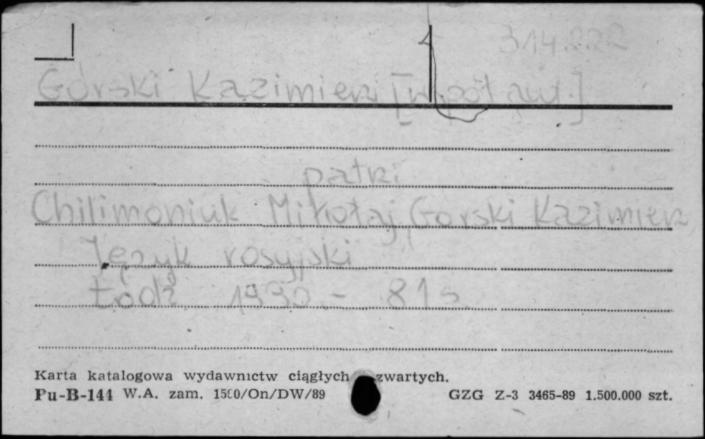 314.222
Górski Kazimierz [współaut.]
patrz
Chilimoniuk Mikołaj, Gorski Kazimierz
Język rosyjski
Łódź 1990.- 81 s
Karta katalogowa wydawnictw ciągłych zwartych.
Pu-B-144 W.A. zam. 1500/On/DW/89 GZG Z-3 3465-89 1.500.000 szt.